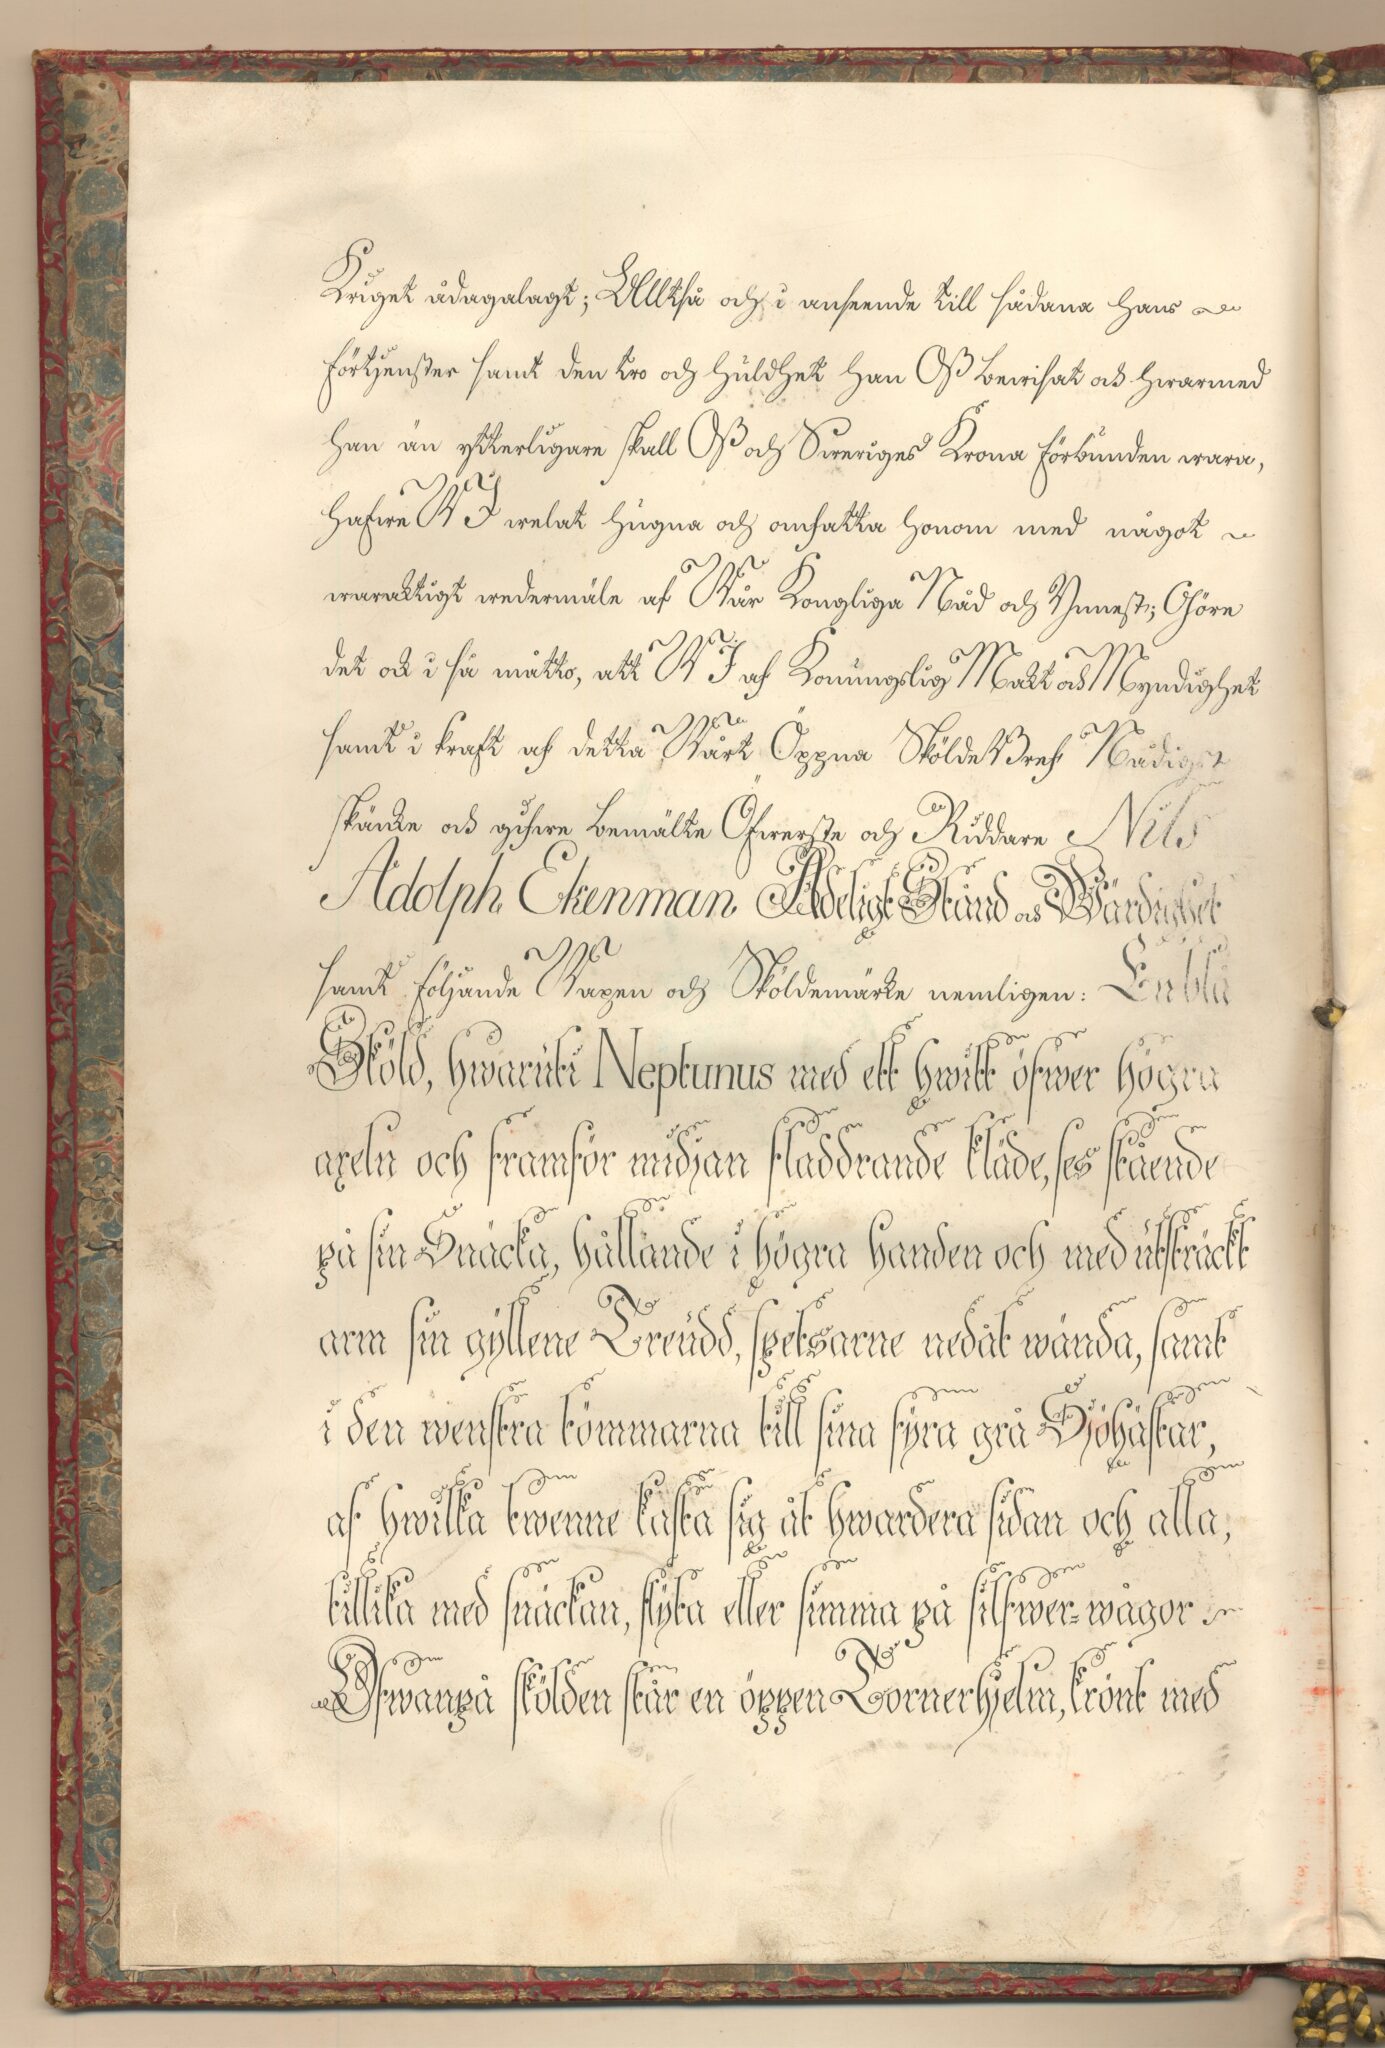 Kriget ådagalagt; Alltså och i anseende till sådana Hans
förtjenster samt den tro och huldhet han Oß bewisat ock hwarmed
han än ytterligare skall Oß och Sweriges Krona förbunden wara,
hafwe WJ welat hugna och omfatta honom med något
waraktigt wedermäle af Wår Kongliga Nåd och Ynnest; Göre
det ock i så måtto, att WJ af Konungslig Makt och Myndighet
samt i kraft af detta Wårt Öppna Sköldebref Nådigst
skänke och gifwe bemälte Öfwerste och Riddare Nils
Adolph Ekenman Adeligt Stånd och Wärdighet
samt följande Wapen och Sköldemärke nemligen: En blå
Sköld, hwaruti Neptunus med ett hwitt öfwer högra
axeln och framför midjan fladdrande kläde, ses stående
på sin Snäcka, hållande i högra handen och med utsträckt
arm sin gyllene Treudd, spetsarne nedåt wända, samt
i den wenstra tömmarna till sina fyra grå Sjöhästar,
af hwilka twenne kasta sig åt hwardera sidan och alla,
tillika med snäckan, flyta eller simma på silfwer-wågor
Ofwanpå skölden står en öppen Tornerhjelm, krönt med